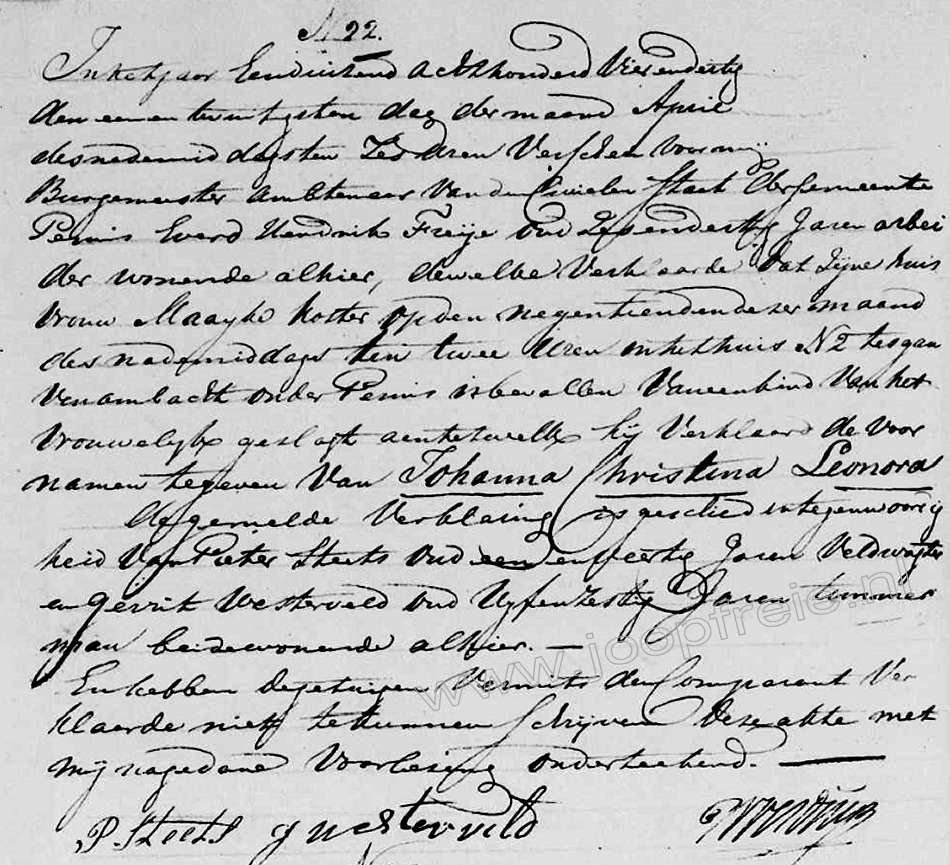 N 22.
In het jaar Eenduizend Achthonderd Vierendertig
den eenentwintigsten dag der maand April
des nademiddags ten Zes Uren Verscheen voor mij
Burgemeester Ambtenaar Van den Civielen Staat der Gemeente
Pernis Everd Hendrik Freije oud Zesendertig Jaren arbei
der wonende alhier, dewelke Verklaarde dat Zijne huis
vrouw Maayke Kotter op den negentienden dezer maand
des nademiddags ten twee Uren in het huis N 2
Venambacht onder Pernis is bevallen Van een kind Van het
Vrouwelijk geslagt aan het welk hij Verklaard de Voor
namen te geven Van Johanna Christina Leonora
de gemelde Verklaring is geschied in tegenwoordig
heid Van Pieter Steets oud een en veertig Jaren Veldwagter
en Gerrit Westerveld oud Vyfenzestig Jaren timmer
man beide wonende alhier. —
En hebben de getuigen Vermits de Comparant Ver
klaarde niet te kunnen Schrijven deze akte met
mij na gedane Voorlezing onderteekend. —
P. Steets G Westerveld
www.joopfreie.nl